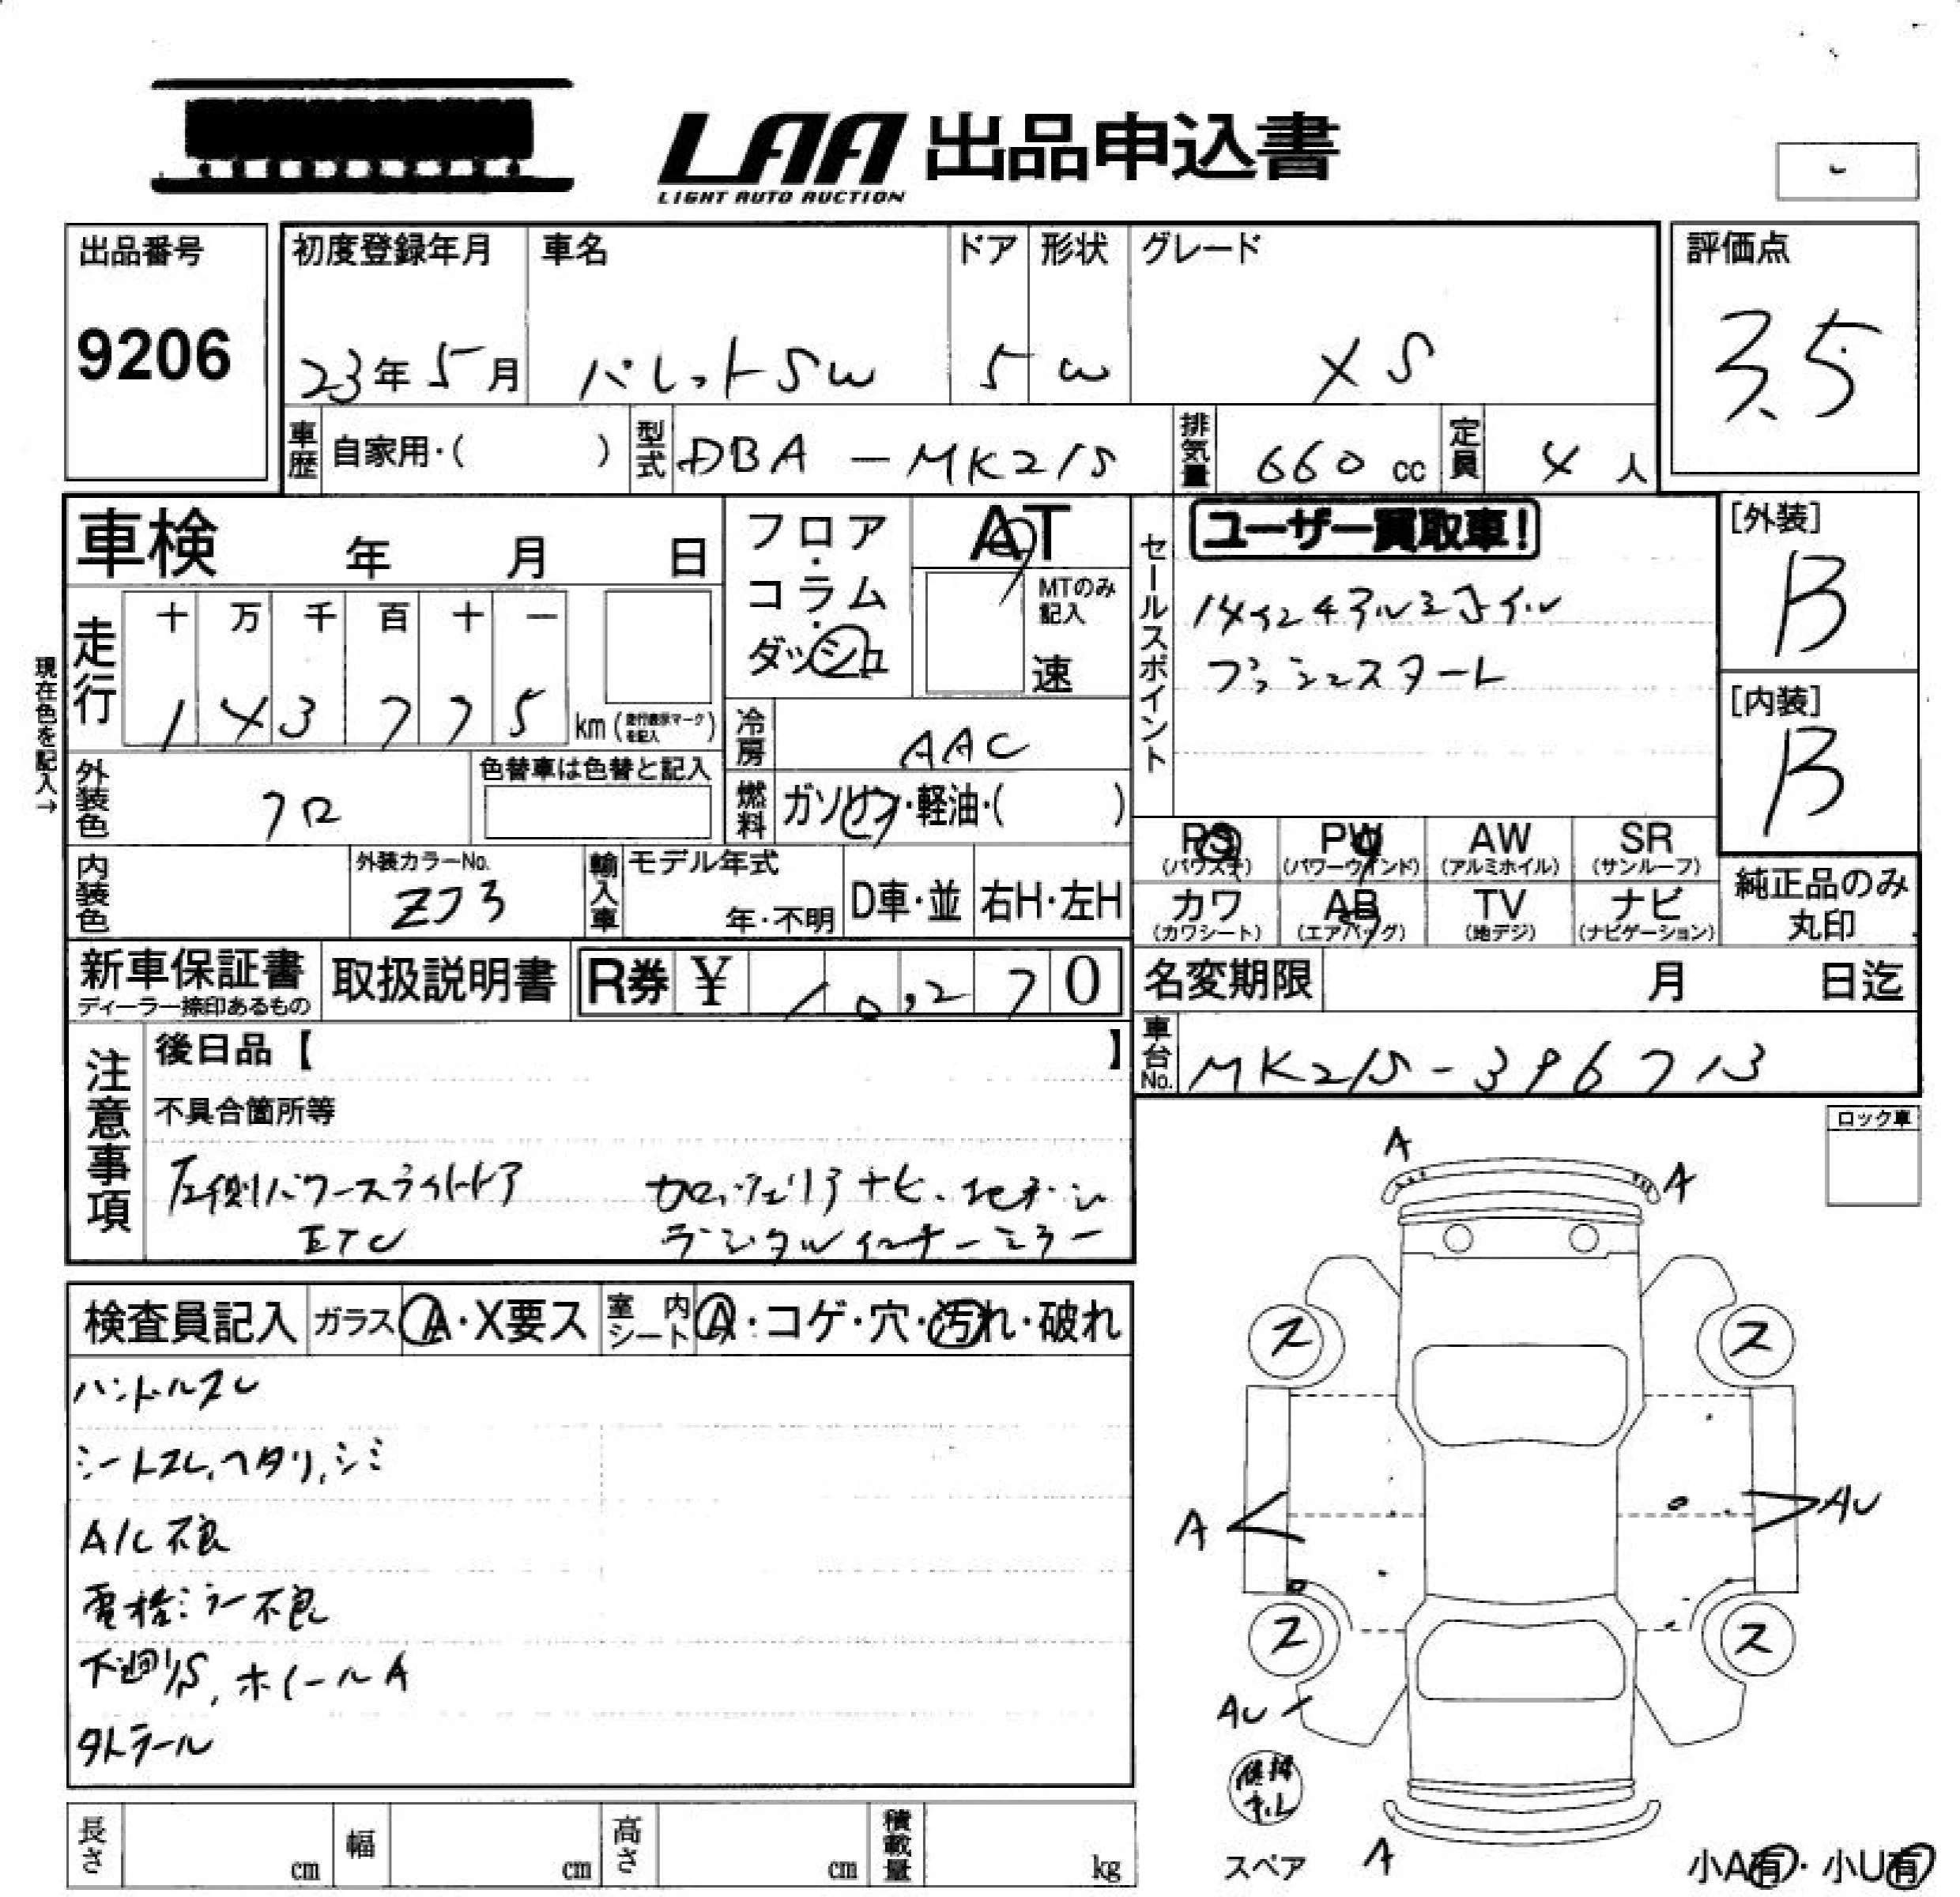 LAA 出品申込書
LIGHT AUTO AUCTION
出品番号
9206
初度登録年月
23年5月
車名
パレットSW
ドア
5
形状
W
グレード
XS
評価点
3.5
車歴
自家用・( )
型式
DBA-MK21S
排気量
660 cc
定員
4人
車検 年 月 日
フロア・コラム・ダッシュ
AT
MTのみ記入
速
セールスポイント
ユーザー買取車!
14インチアルミホイル
プッシュスタート
[外装]
B
[内装]
B
現在色を記入→
走行
十 万 千 百 十 一
1 4 3 7 7 5 km (走行表示マークを記入)
冷房
AAC
外装色
クロ
色替車は色替と記入
燃料
ガソリン・軽油・( )
PS (パワステ)
PW (パワーウインド)
AW (アルミホイル)
SR (サンルーフ)
カワ (カワシート)
AB (エアバッグ)
TV (地デジ)
ナビ (ナビゲーション)
純正品のみ丸印
内装色
外装カラーNo.
ZJ3
輸入車
モデル年式
年・不明
D車・並
右H・左H
新車保証書
ディーラー捺印あるもの
取扱説明書
R券 ¥ 10,270
名変期限 月 日迄
車台No.
MK21S-396713
注意事項
後日品【 】
不具合箇所等
左側パワースライドドア カロッツェリアナビ・地デジ
ETC デジタルインナーミラー
ロック車
検査員記入
ガラス A・X要ス
室内シート A・コゲ・穴・汚れ・破れ
ハンドルスレ
シートスレ,ヘタリ,シミ
A/C不良
電格ミラー不良
下廻りS,ホイールA
タトテール
A
A
ス
ス
A
AU
ス
ス
AU
スペア
A
小A有・小U有
長さ cm
幅 cm
高さ cm
積載量 kg